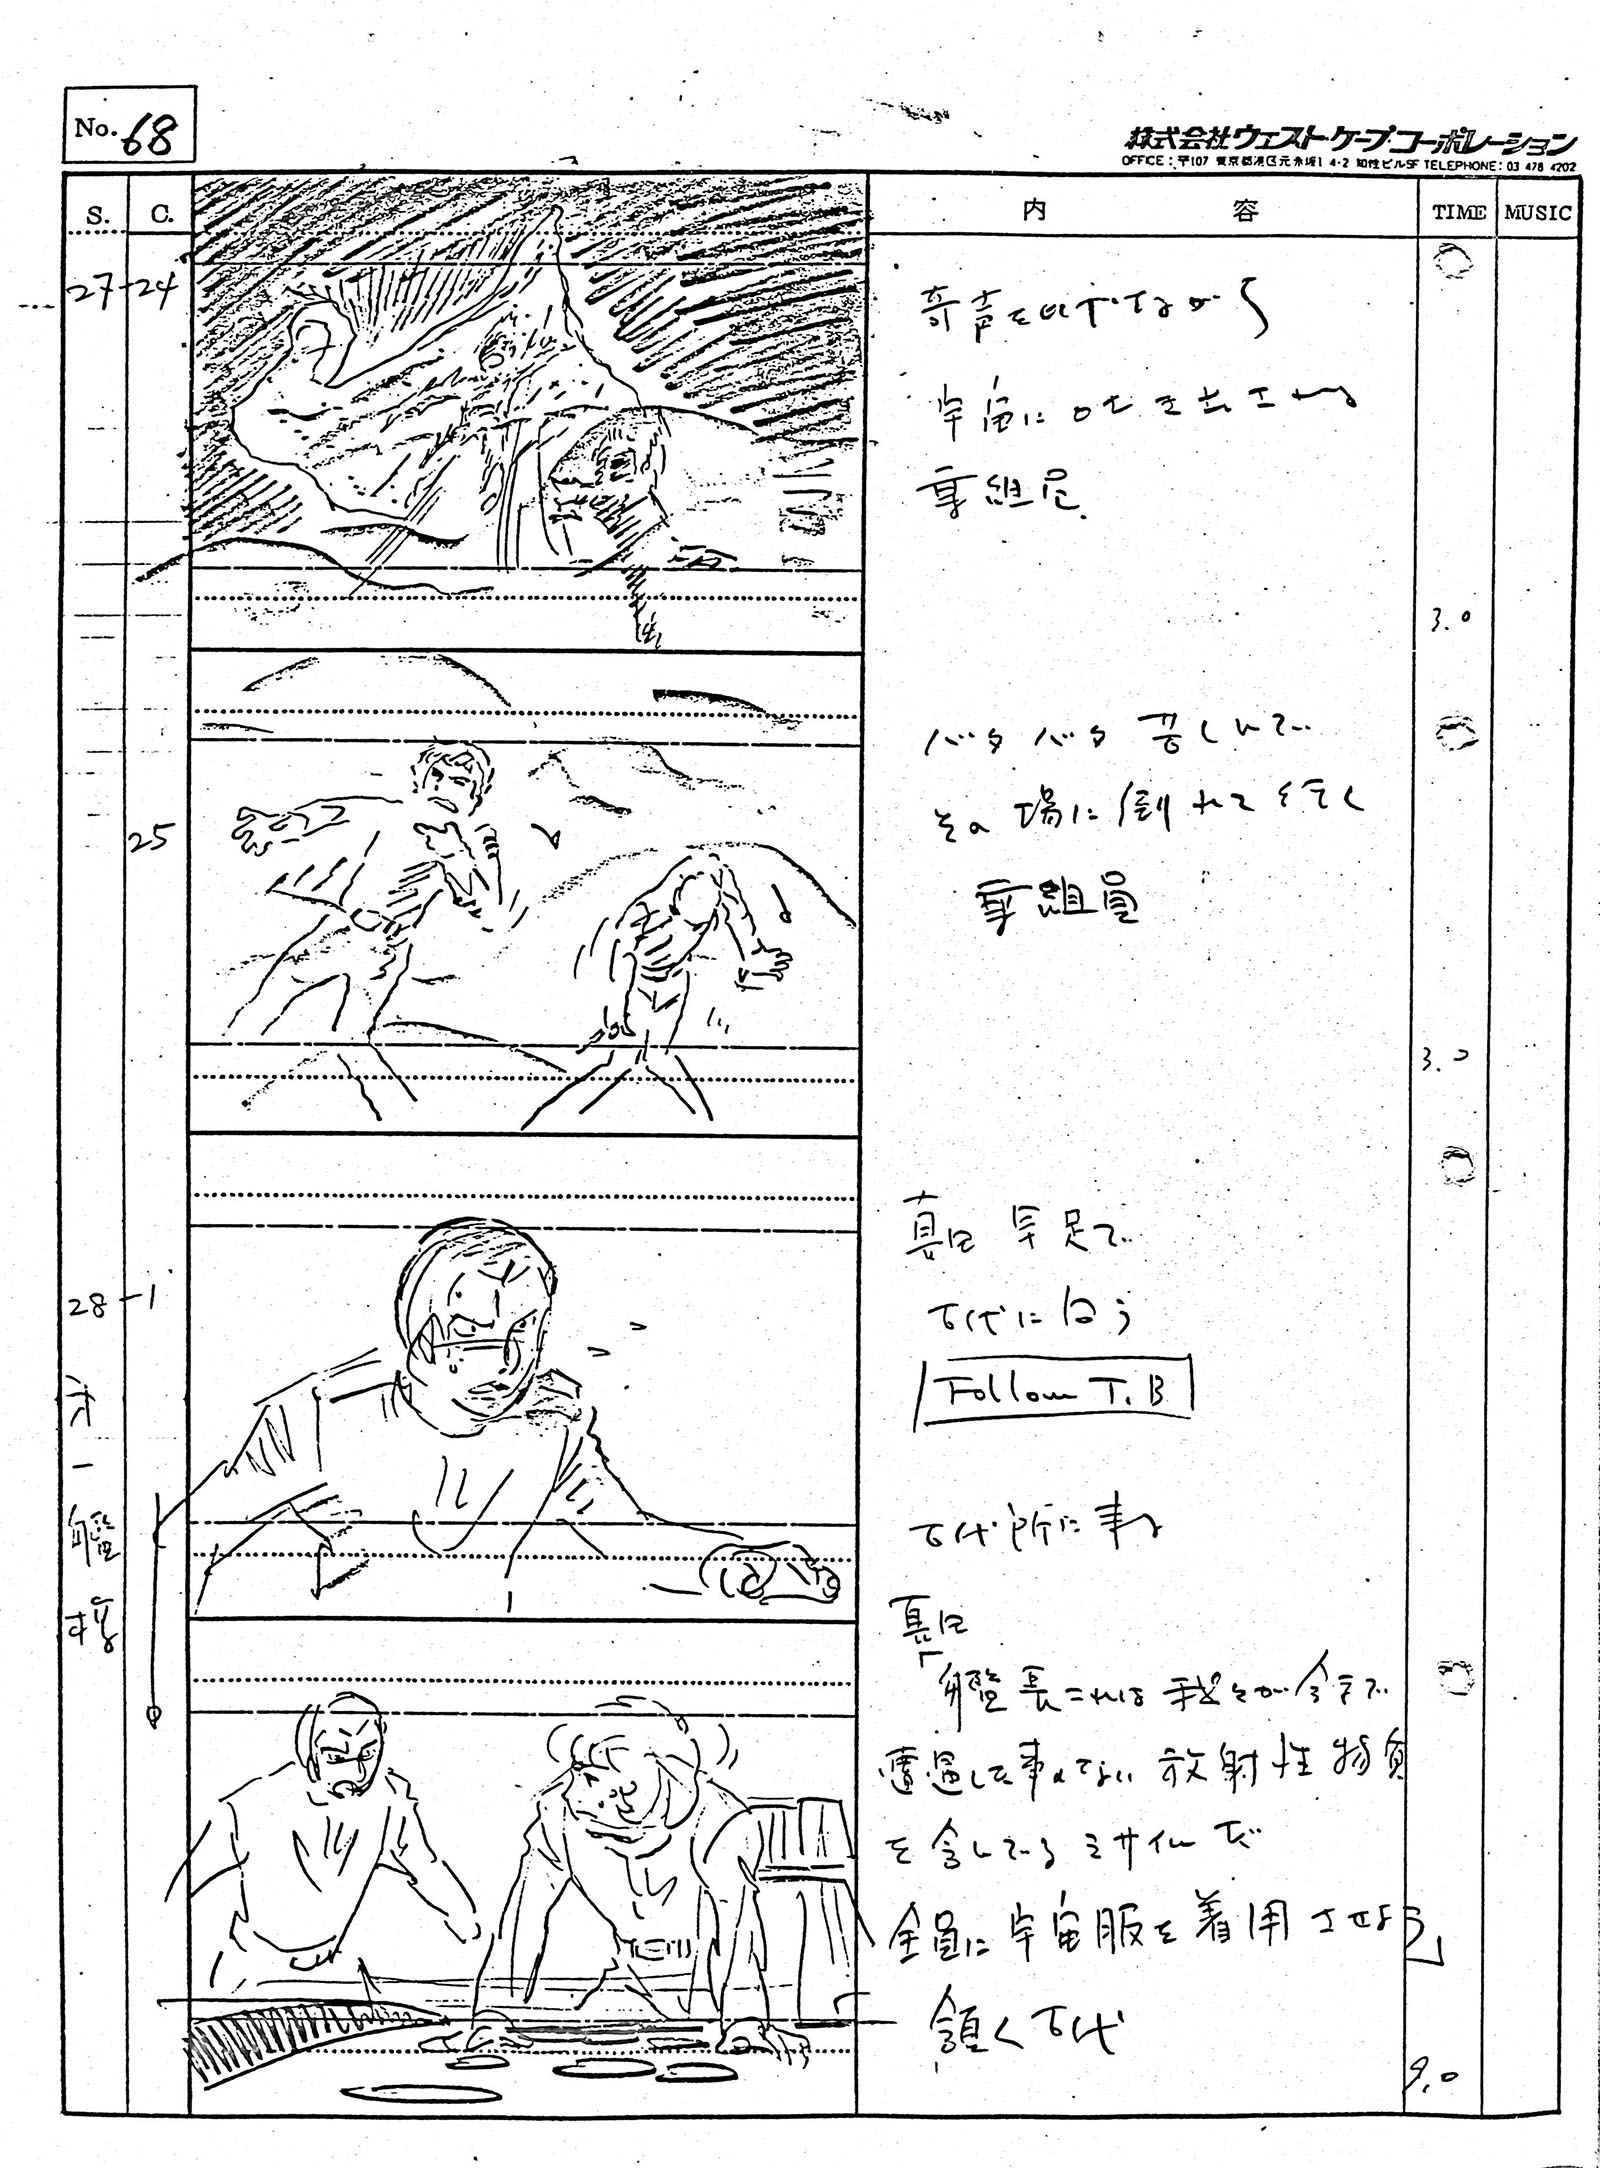 No. 68
株式会社ウェスト・ケープ・コーポレーション
OFFICE:〒107 東京都港区元赤坂1 4-2 知性ビル5F TELEPHONE:03 478 4202
S. C. 内容 TIME MUSIC
27-24
奇声をあげながら
宇宙に吐き出される
乗組員
3.0
25
バタバタ苦しんで
その場に倒れて行く
乗組員
3.0
28-1
第一艦橋
真田 早足で
古代に向う
Follow T.B
古代所に来る
真田
「艦長これは我々が今まで
遭遇した事のない放射性物質
を含んでいるミサイルだ
全員に宇宙服を着用させよう」
頷く古代
9.0